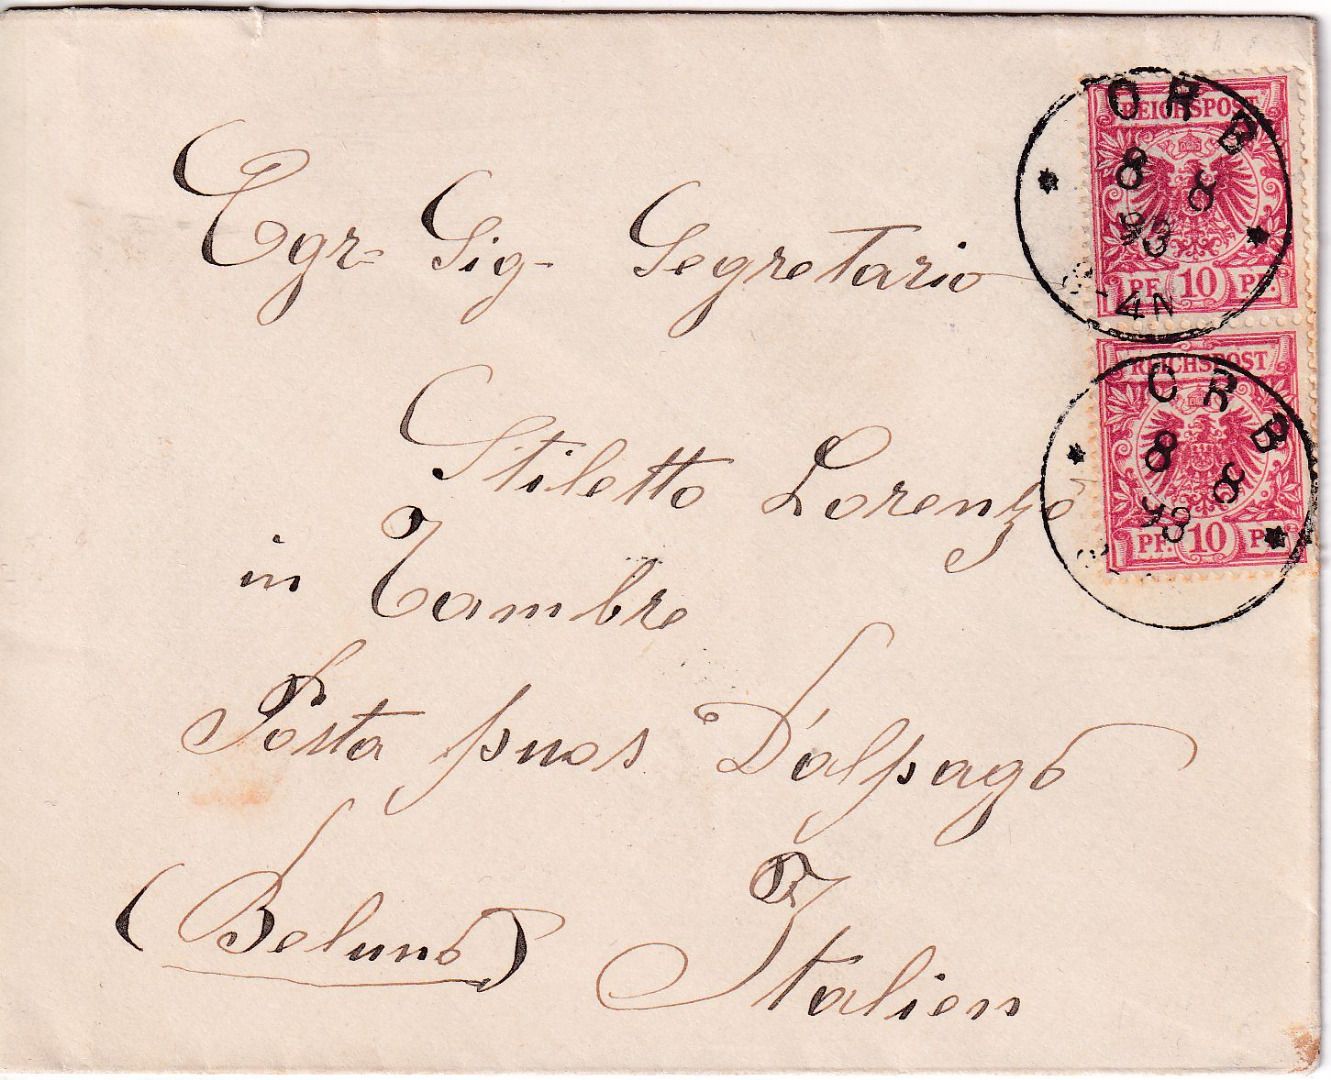 Egr= Sig- Segretario
Stiletto Lorenzo
in Tambre
Posta puos D'alpago
(Beluno)
Italien
REICHSPOST
PF. 10 PF.
ORB
8 8
93
8-4N
REICHSPOST
PF. 10 PF.
ORB
8 8
93